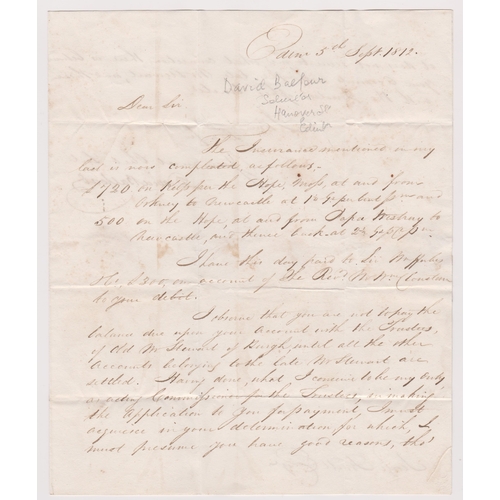 Edinr. 5th Sept. 1812.
David Balfour
Solicitor
Hanover St
Edinr
Dear Sir
The Insurance mentioned in my
last is now completed, as follows,-
£720 on Kelp per the Hope, at and from
Orkney to Newcastle at and
500 on the Hope at and from Papa Westray to
Newcastle, and thence back at
I have this day paid to Sir Wm Forbes
& Co. £200, on account of The Revd Mr Wm Clouston
to your debit.
I observe that you are not to pay the
balance due upon your account with the Trustees,
of Old Mr Steward of Burgh, until all the other
accounts belonging to the late Mr Steward are
settled. Having done, what I conceive to be my duty
as acting Commissioner for the Trustees, in making
the application to you for payment, I must
acquiesce in your determination for which, I
must presume you have good reasons, tho'